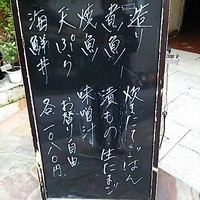 造り
煮魚
焼魚
天ぷら
海鮮丼
炊たてごはん
漬もの 生たまご
味噌汁
お替り自由
各一〇八〇円